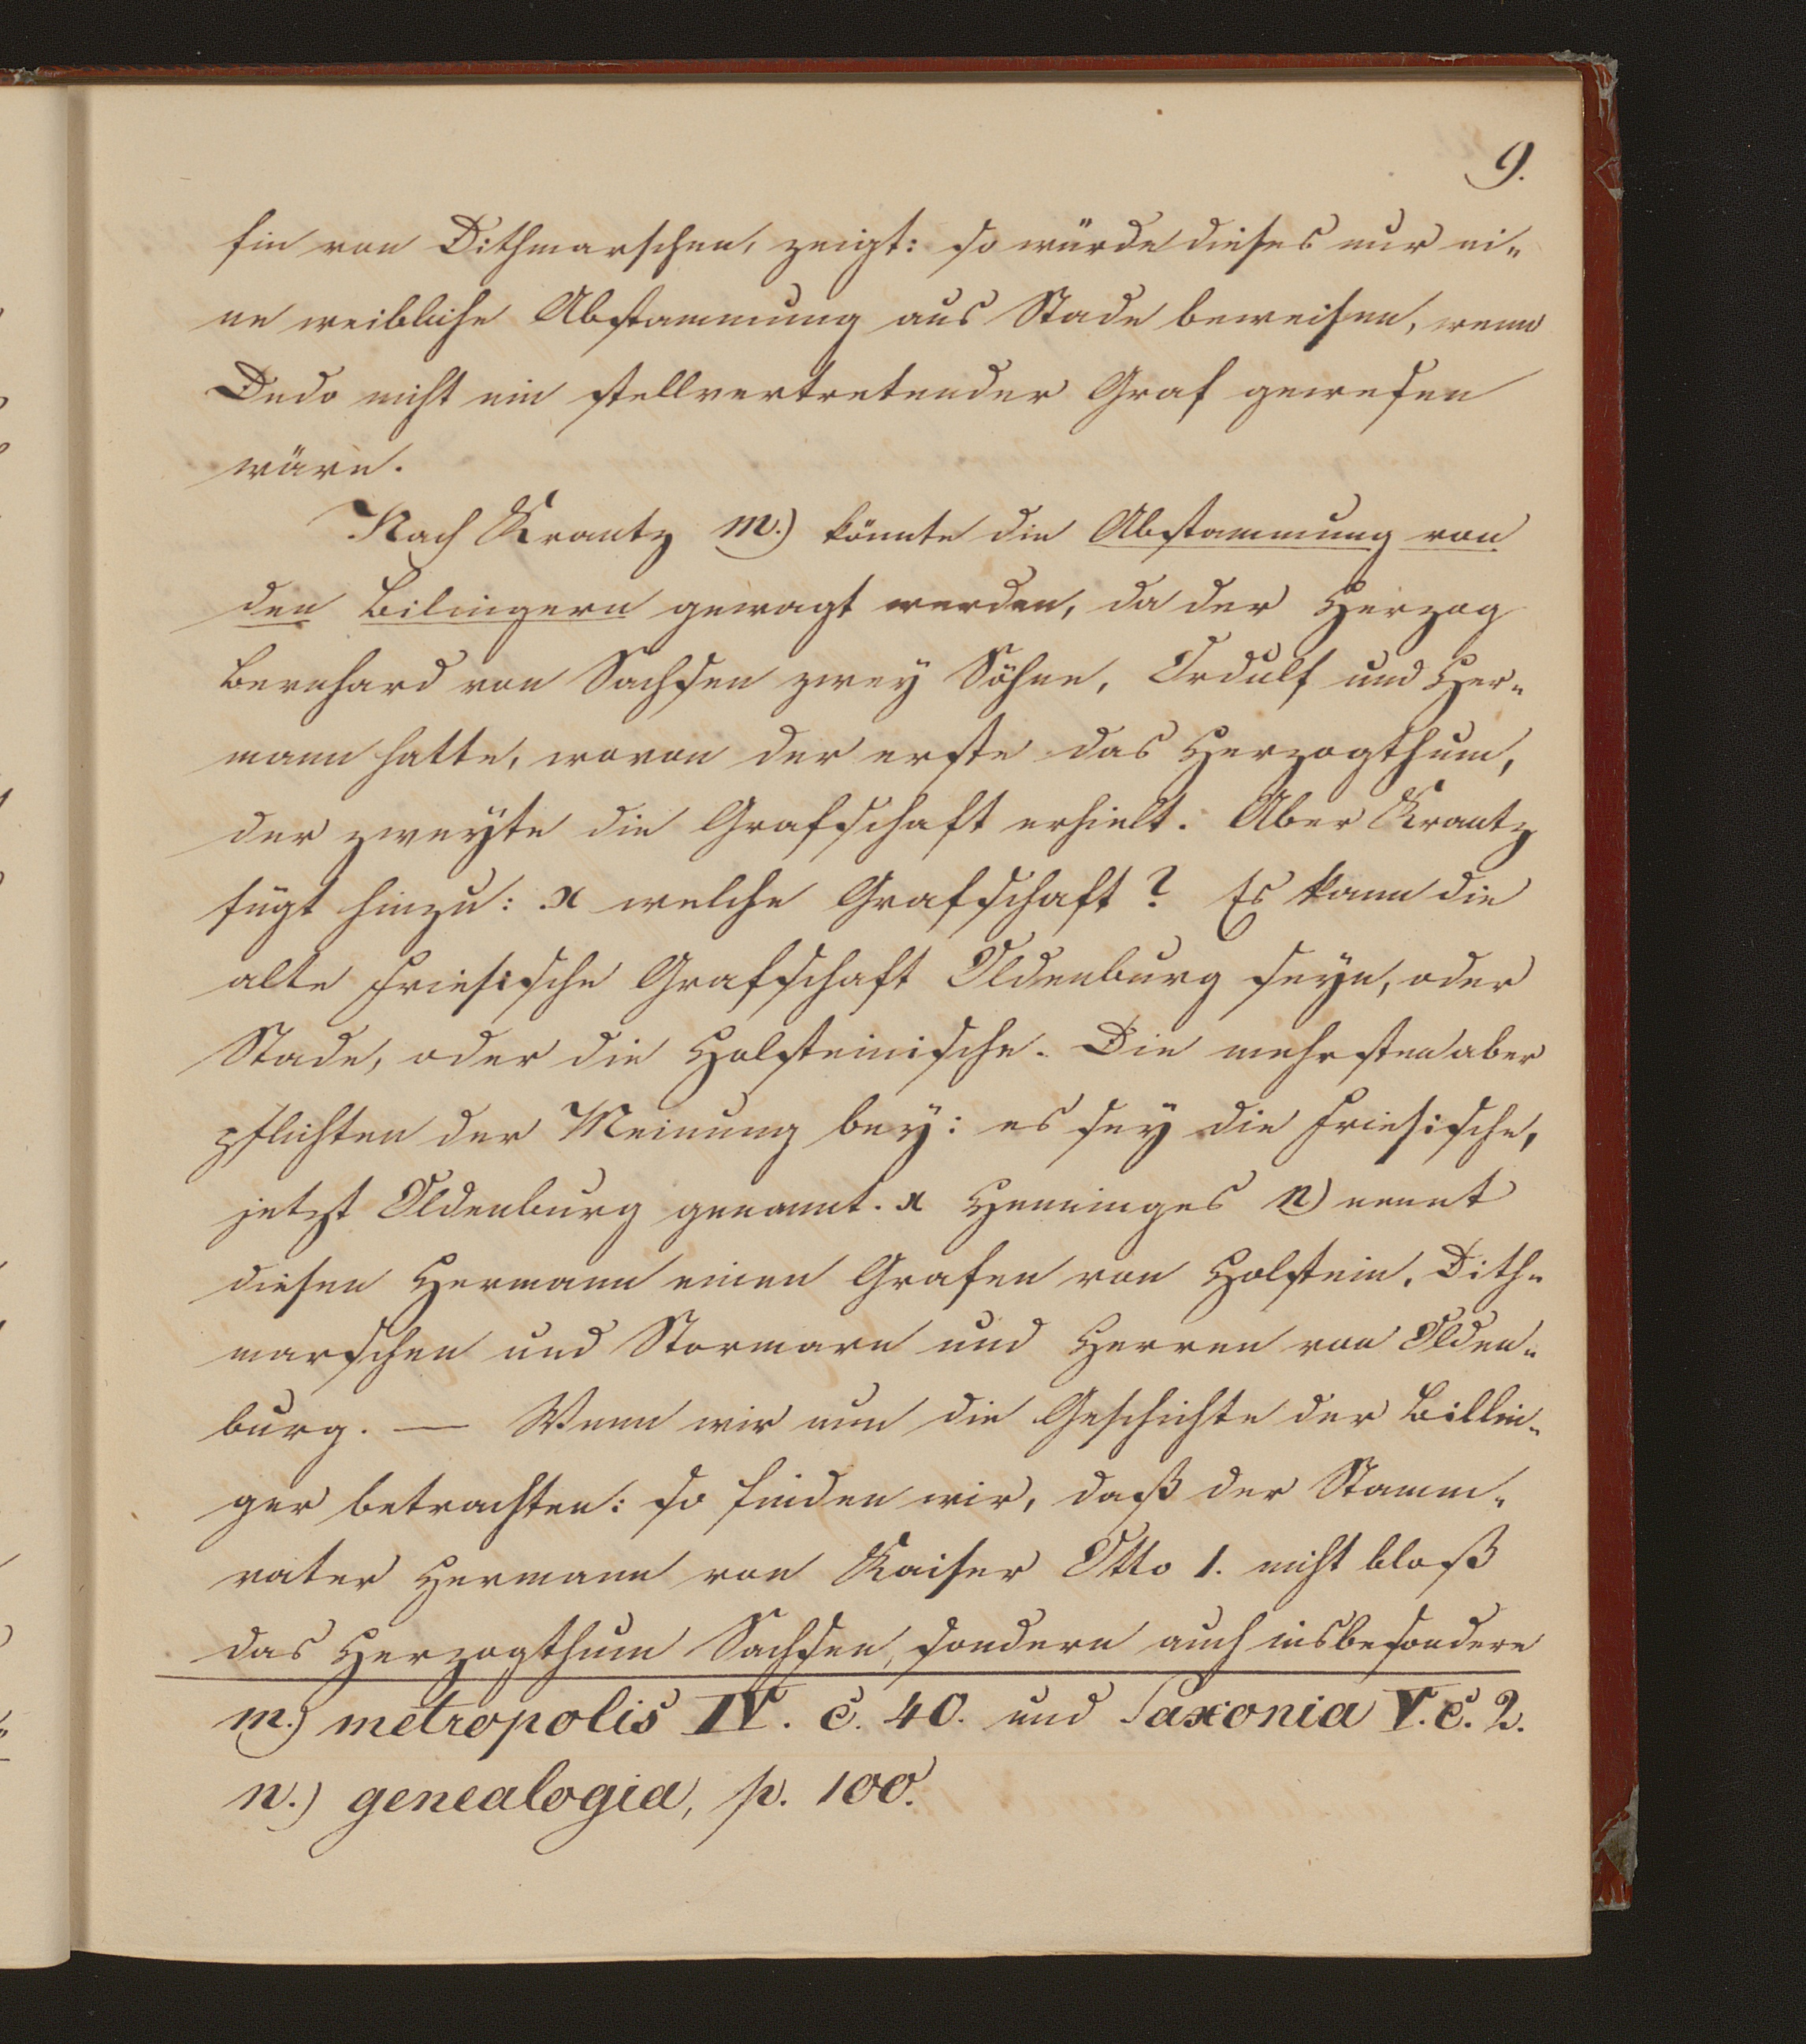 9.
fin von Dithmarschen, zeigt: so würde dieses nur ei-
ne weibliche Abstammung aus Stade beweisen, wenn
Dedo nicht ein stellvertretender Graf gewesen
wäre.
Nach Krantz m.) könnte die Abstammung von
den Bilingern gewagt werden, da der Herzog
Bernhard von Sachsen zwey Söhne, Ordulf und Her-
mann hatte, wovon der erste das Herzogthum,
der zweyte die Grafschaft erhielt. Aber Krantz
fügt hinzu: x welche Grafschaft? Es kann die
alte Friesische Grafschaft Oldenburg seyn, oder
Stade, oder die Holsteinische. Die mehrsten aber
pflichten der Meinung bey: es sey die Friesische,
jetzt Oldenburg genannt. x Henninges n) nennt
diesen Hermann einen Grafen von Holstein, Dith-
marschen und Stormarn und Herren von Olden-
burg. — Wenn wir nun die Geschichte der Billin-
ger betrachten: so finden wir, daß der Stamm-
vater Hermann von Kaiser Otto 1. nicht bloß
das Herzogthum Sachsen, sondern auch insbesondere
m.) metropolis IV. c. 40. und Saxonia V. c. 2.
n.) genealogia, p. 100.